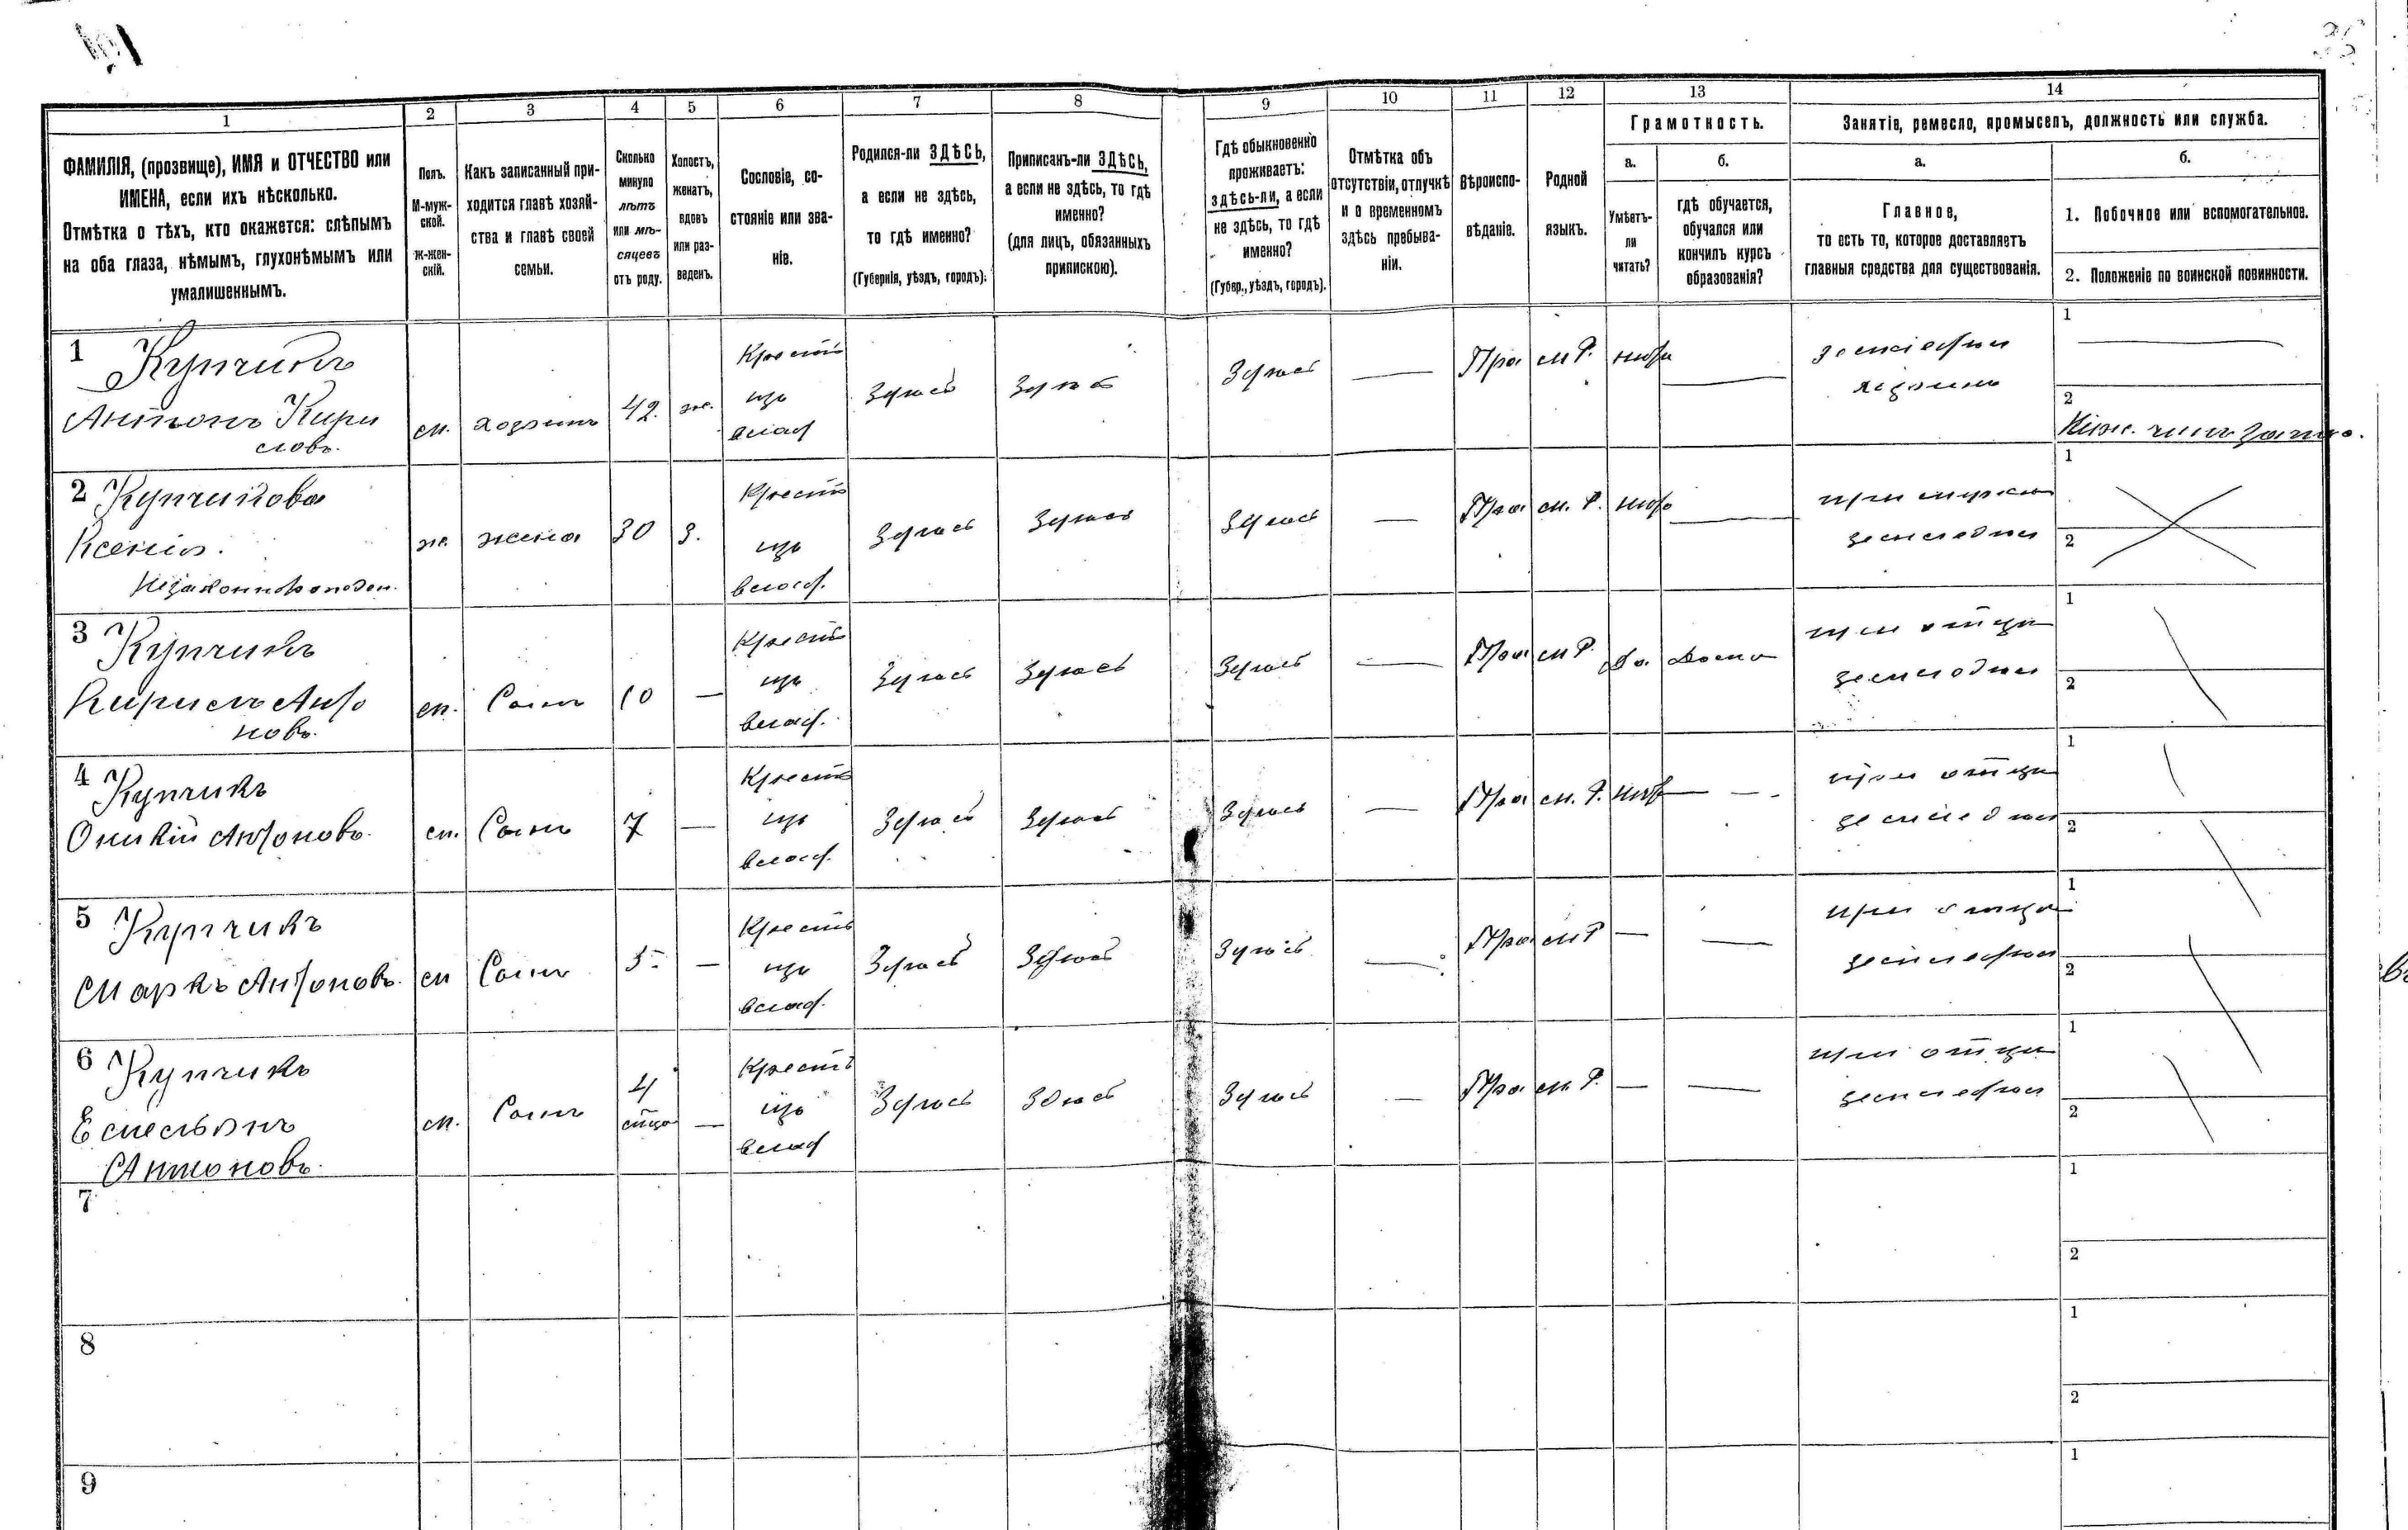 1
2
3
4
5
6
7
8
9
10
11
12
13
14
ФАМИЛІЯ, (прозвище), ИМЯ и ОТЧЕСТВО или
ИМЕНА, если ихъ нѣсколько.
Отмѣтка о тѣхъ, кто окажется: слѣпымъ
на оба глаза, нѣмымъ, глухонѣмымъ или
умалишеннымъ.
Полъ.
М-муж-
ской.
Ж-жен-
скій.
Какъ записанный при-
ходится главѣ хозяй-
ства и главѣ своей
семьи.
Сколько
минуло
лѣтъ
или мѣ-
сяцевъ
отъ роду.
Холостъ,
женатъ,
вдовъ
или раз-
веденъ.
Сословіе, со-
стояніе или зва-
ніе.
Родился-ли ЗДѢСЬ,
а если не здѣсь,
то гдѣ именно?
(Губернія, уѣздъ, городъ).
Приписанъ-ли ЗДѢСЬ,
а если не здѣсь, то гдѣ
именно?
(для лицъ, обязанныхъ
припискою).
Гдѣ обыкновенно
проживаетъ:
здѣсь-ли, а если
не здѣсь, то гдѣ
именно?
(Губер., уѣздъ, городъ).
Отмѣтка объ
отсутствіи, отлучкѣ
и о временномъ
здѣсь пребыва-
ніи.
Вѣроиспо-
вѣданіе.
Родной
языкъ.
Грамотность.
а.
Умѣетъ-
ли
читать?
б.
гдѣ обучается,
обучался или
кончилъ курсъ
образованія?
Занятія, ремесло, промыселъ, должность или служба.
а.
Главное,
то есть то, которое доставляетъ
главныя средства для существованія.
б.
1. Побочное или вспомогательное.
2. Положеніе по воинской повинности.
1 Купчикъ
Антонъ Кири
ловъ.
м.
хозяинъ
42.
ж.
Крестъ
Здѣсь
Здѣсь
Здѣсь
Пра
м Р.
нѣтъ
земледѣл
хозяинъ
1
2
2 Купчикова
Ксенія.
Незаконнорожден.
ж.
жена
30
З.
Крестъ
Здѣсь
Здѣсь
Здѣсь
Пра
м. Р.
нѣтъ
при мужѣ
земледѣл
1
2
3 Купчикъ
Кирилъ Анто
новъ.
м.
Сынъ
10
Крестъ
Здѣсь
Здѣсь
Здѣсь
Пра
м Р.
да
дома
при отцѣ
земледѣл
1
2
4 Купчикъ
Оникій Антоновъ.
м.
Сынъ
7
Крестъ
Здѣсь
Здѣсь
Здѣсь
Пра
м. Р.
нѣтъ
при отцѣ
земледѣл
1
2
5 Купчикъ
Маркъ Антоновъ.
м
Сынъ
5.
Крестъ
Здѣсь
Здѣсь
Здѣсь
Пра
м Р
при отцѣ
земледѣл
1
2
6 Купчикъ
Емельянъ
Антоновъ.
м.
Сынъ
4
Крестъ
Здѣсь
Здѣсь
Здѣсь
Пра
м. Р.
при отцѣ
земледѣл
1
2
7
1
2
8
1
2
9
1